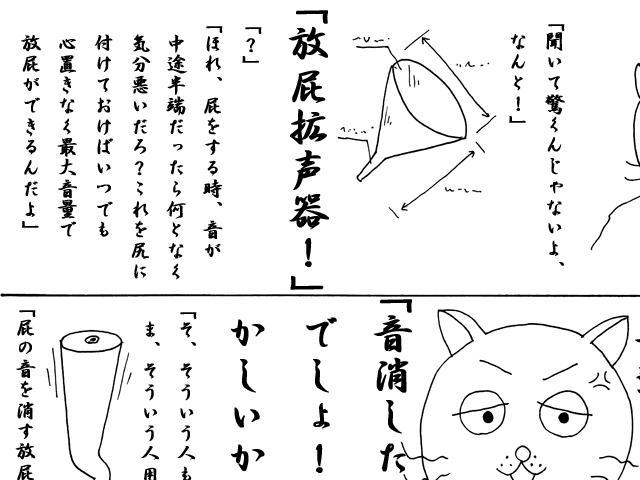 「聞いて驚くんじゃないよ、
なんと！」
「放屁拡声器！」
「？」
「ほれ、屁をする時、音が
中途半端だったら何となく
気分悪いだろ？これを尻に
付けておけばいつでも
心置きなく最大音量で
放屁ができるんだよ」
「音消した
でしょ！
かしいか
「そ、そういう人も
ま、そういう人用
「屁の音を消す放屁